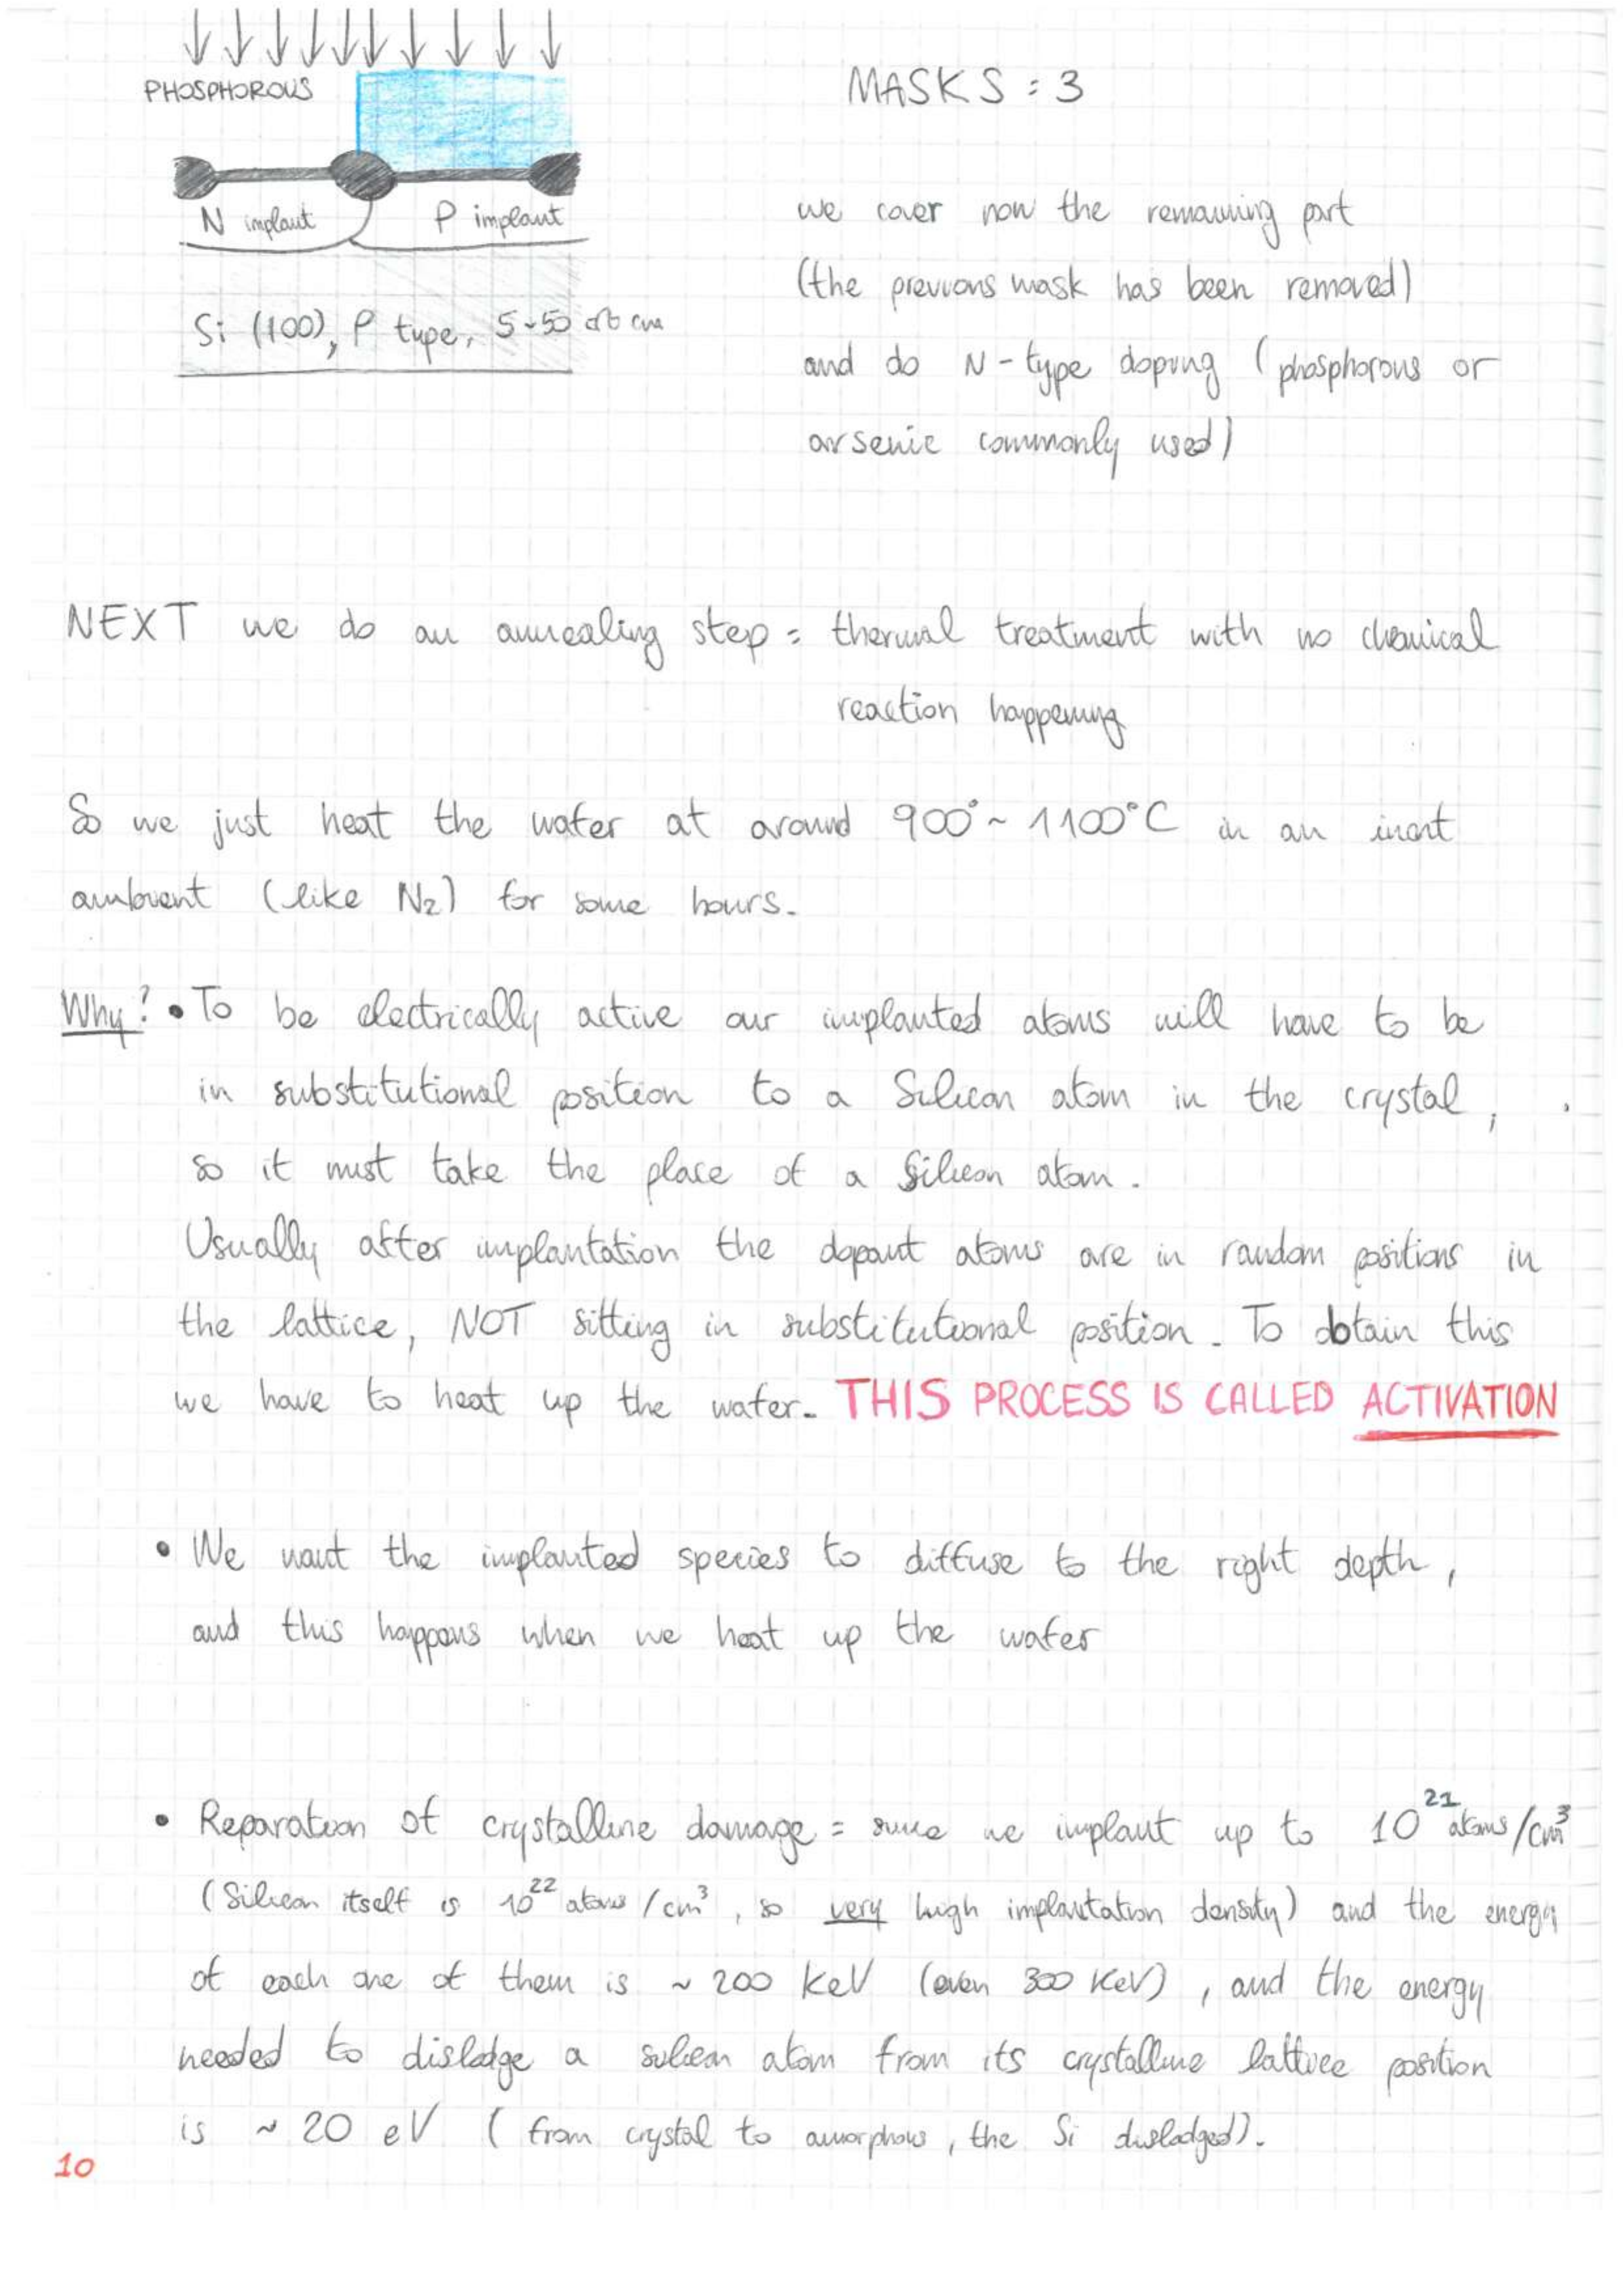 PHOSPHOROUS
MASKS : 3
N implant
P implant
Si (100), P type, 5~50 cm
we cover now the remaining part
(the previous mask has been removed)
and do N-type doping (phosphorous or
arsenic commonly used)
NEXT we do an annealing step = thermal treatment with no chemical
reaction happening
So we just heat the wafer at around 900° ~ 1100°C in an inert
ambient (like N2) for some hours.
Why? • To be electrically active our implanted atoms will have to be
in substitutional position to a Silicon atom in the crystal,
so it must take the place of a Silicon atom.
Usually after implantation the dopant atoms are in random positions in
the lattice, NOT sitting in substitutional position. To obtain this
we have to heat up the wafer. THIS PROCESS IS CALLED ACTIVATION
• We want the implanted species to diffuse to the right depth,
and this happens when we heat up the wafer
• Reparation of crystalline damage = since we implant up to 10^21 atoms/cm^3
(Silicon itself is 10^22 atoms/cm^3, so very high implantation density) and the energy
of each one of them is ~ 200 KeV (even 300 KeV), and the energy
needed to dislodge a silicon atom from its crystalline lattice position
is ~ 20 eV (from crystal to amorphous, the Si dislodged).
10